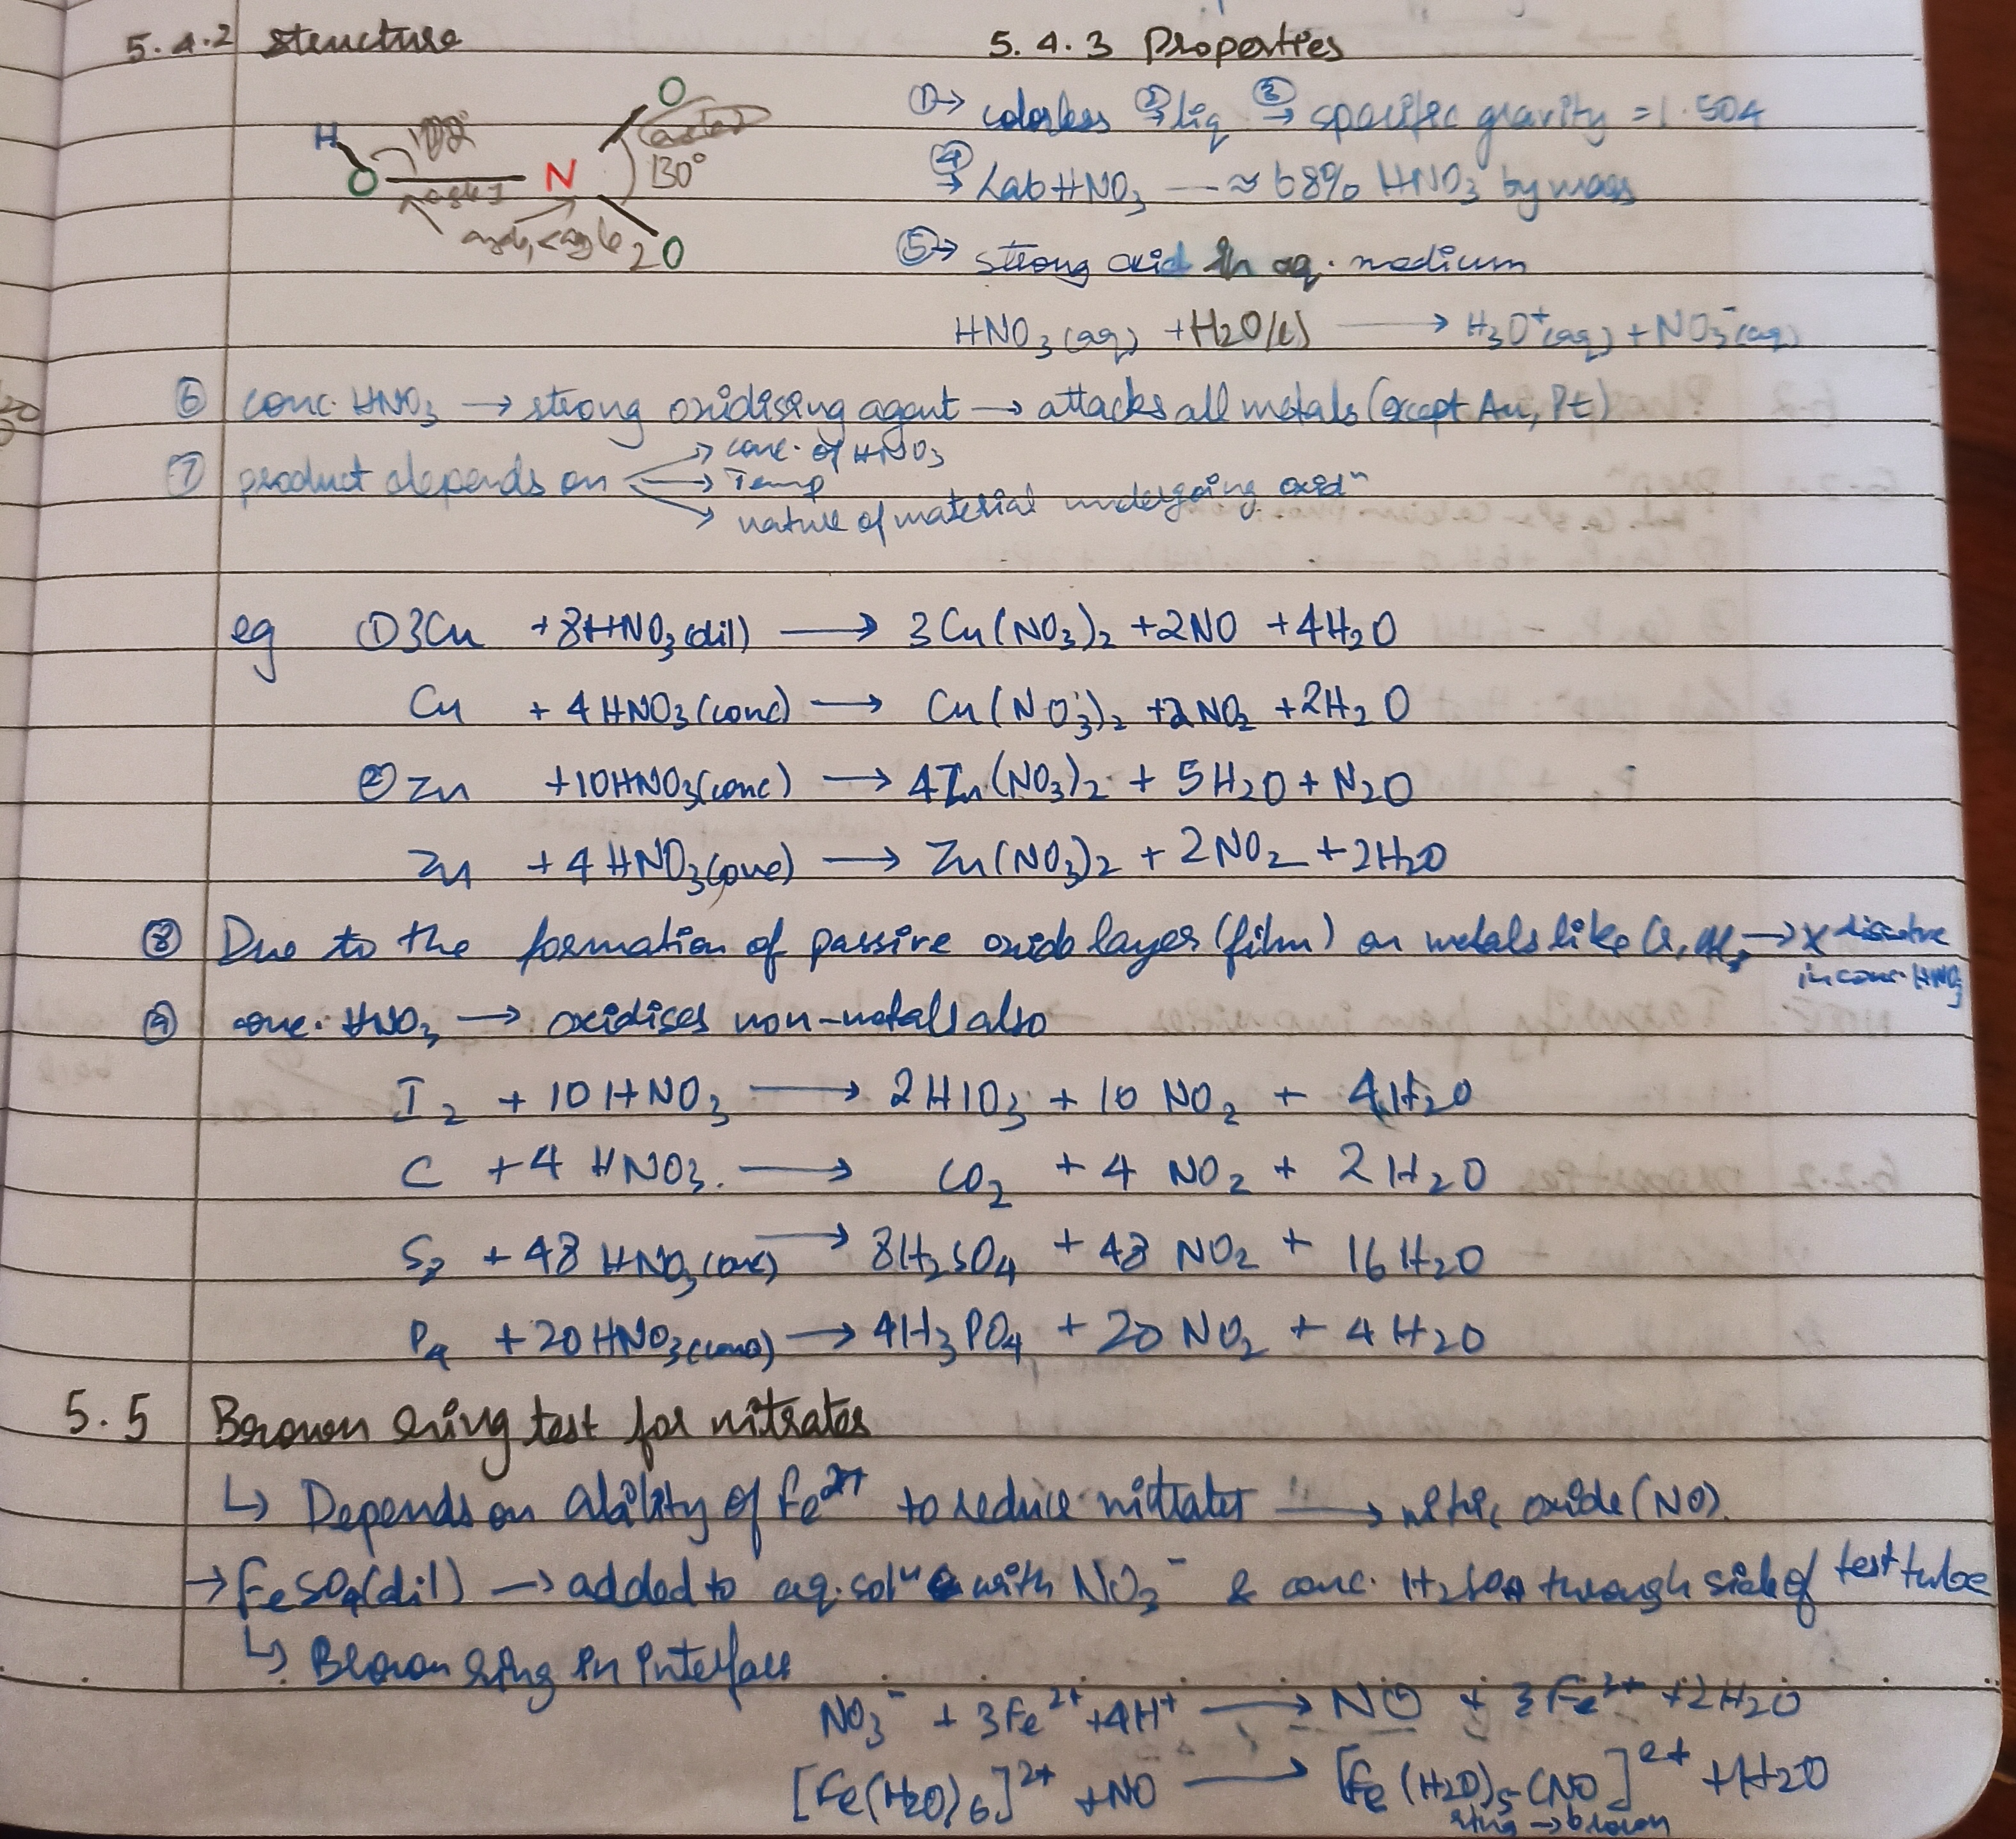 5.4.2 Structure
H
O
N
O
O
130°
angle 2
5.4.3 Properties
① → colorless ② → liq ③ → specific gravity = 1.504
④ → Lab HNO3 — ≈ 68% HNO3 by mass
⑤ → strong acid in aq. medium
HNO3(aq) + H2O(l) → H3O+(aq) + NO3-(aq)
⑥ conc. HNO3 → strong oxidising agent → attacks all metals (except Au, Pt)
⑦ product depends on → conc. of HNO3
→ Temp
→ nature of material undergoing oxidn
eg ① 3Cu + 8HNO3(dil) → 3Cu(NO3)2 + 2NO + 4H2O
Cu + 4HNO3(conc) → Cu(NO3)2 + 2NO2 + 2H2O
② Zn + 10HNO3(conc) → 4Zn(NO3)2 + 5H2O + N2O
Zn + 4HNO3(conc) → Zn(NO3)2 + 2NO2 + 2H2O
⑧ Due to the formation of passive oxide layer (film) on metals like Cr, Al, → x dissolve
in conc. HNO3
⑨ conc. HNO3 → oxidises non-metals also
I2 + 10HNO3 → 2HIO3 + 10 NO2 + 4H2O
C + 4 HNO3. → CO2 + 4 NO2 + 2H2O
S8 + 48 HNO3(conc) → 8H2SO4 + 48 NO2 + 16H2O
P4 + 20HNO3(conc) → 4H3PO4 + 20 NO2 + 4H2O
5.5 Brown ring test for nitrates
↳ Depends on ability of Fe2+ to reduce nitrates → nitric oxide (NO).
→ FeSO4(dil) → added to aq. soln with NO3- & conc. H2SO4 through side of test tube
↳ Brown ring in interface
NO3- + 3Fe2+ + 4H+ → NO + 3Fe3+ + 2H2O
[Fe(H2O)6]2+ + NO → [Fe(H2O)5(NO]2+ + H2O
ring → brown